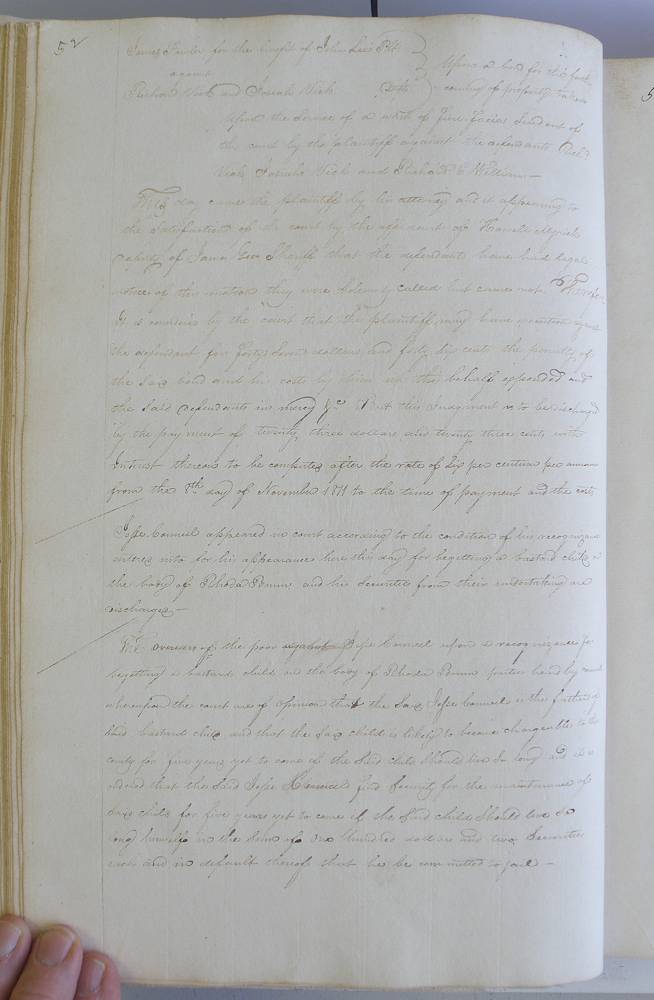 52
James Fowler for the benefit of John Lee Plt
against
Upon a bond for the forth
and Josiah Vick Defts
coming of property taken
upon the service of a writ of fieri facias sued out of
the court by the plaintiff against the defendants
Vick, Josiah Vick and
This day came the plaintiff by his attorney and it appearing to
the satisfaction of the court by the affidavit of Howell Myrick
deputy of James Gee Sheriff that the defendants have had legal
notice of this motion they were solemnly called but came not Therefore
It is considered by the court that the plaintiff may have execution against
the defendant for forty seven dollars and forty six cents the penalty of
the said bond and his costs by him in this behalf expended and
the said defendants in mercy &c But this Judgment is to be discharged
by the payment of twenty three dollars and twenty three cents with
Interest thereon to be computed after the rate of Six per centum per annum
from the 8th day of November 1811 to the time of payment and the costs
Jesse Council appeared in court according to the condition of his recognizance
entered into for his appearance here this day for begetting a bastard child on
the body of Rhoda and his Securities from their undertaking are
discharged —
The overseers of the poor against Jesse Council upon a recognizance for
begetting a bastard child on the body of Rhoda parties heard by
whereupon the court are of opinion that the said Jesse Council is the father of
said bastard child and that the said child is likely to become chargeable to the
county for five years yet to come if the said child should live so long and it is
ordered that the said Jesse Council find Security for the maintenance of
said child for five years yet to come if the said child should live so
long himself in the sum of one hundred dollars and two Securities
each and in default thereof that he be committed to jail —